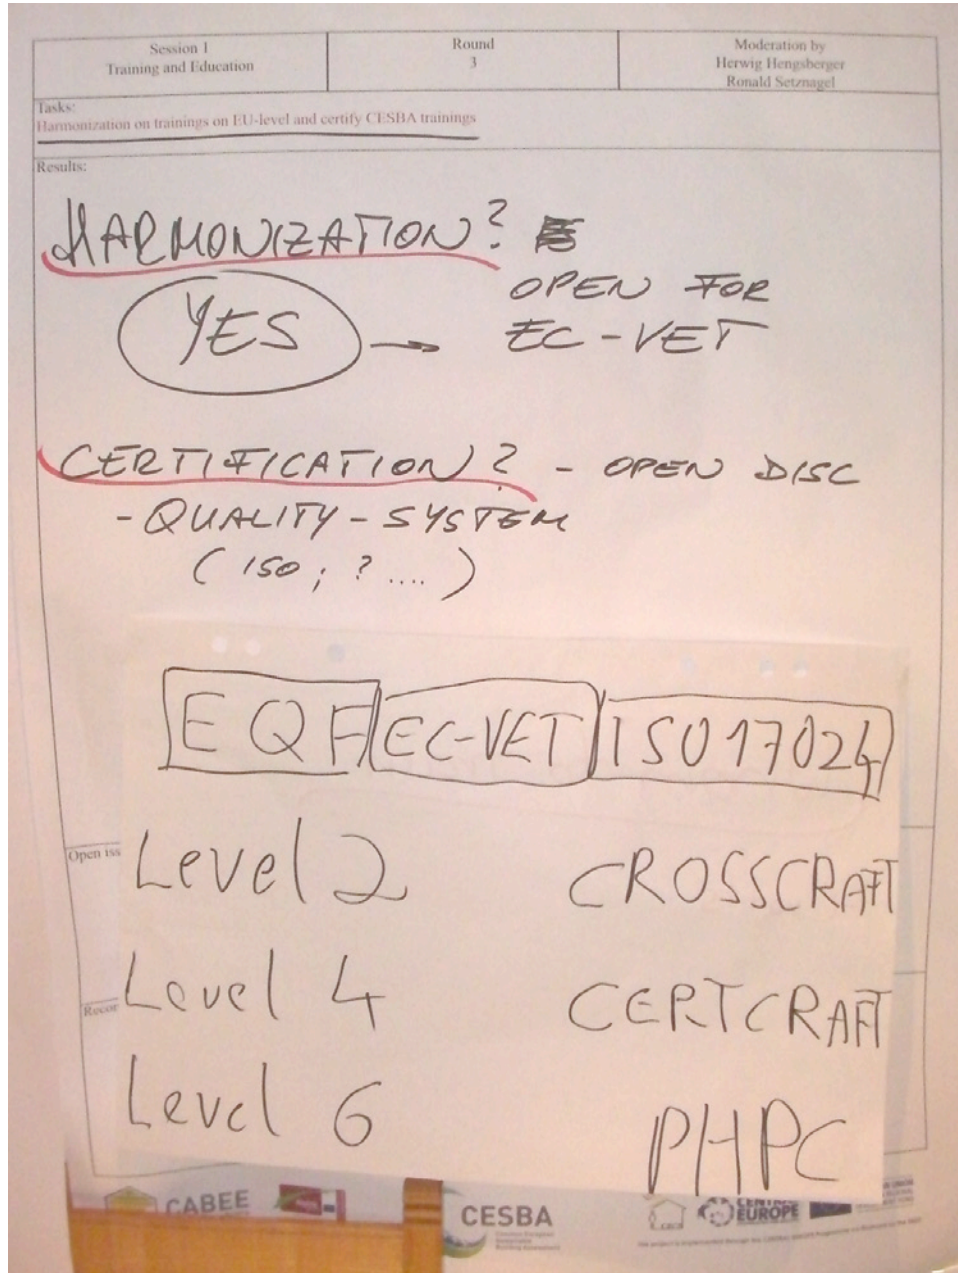 Session 1
Training and Education
Round
3
Moderation by
Herwig Hengsberger
Ronald Setznagel
Tasks:
Harmonization on trainings on EU-level and certify CESBA trainings
Results:
HARMONIZATION?
YES → OPEN FOR
EC-VET
CERTIFICATION? - OPEN DISC
- QUALITY - SYSTEM
(ISO; ? ....)
EQF EC-VET ISO 17024
Open iss
Level 2 CROSSCRAFT
Recor
Level 4 CERTCRAFT
Level 6 PHPC
CABEE
CESBA
CENTRAL
EUROPE